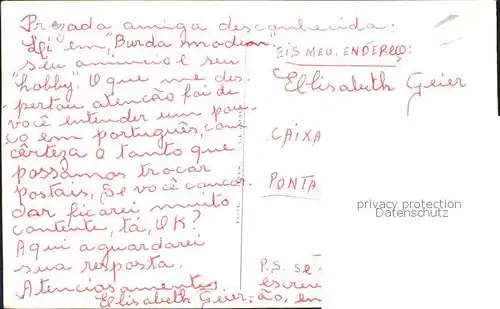 Prezada amiga desconhecida:
Li em, "Burda modem"
seu anúncio e seu
"hobby". O que me des-
pertou atenção foi de
você entender um pou-
co em português, com
certeza o tanto que
possamos trocar
postais, Se você concor-
dar ficarei muito
contente, tá, OK?
Aqui aguardarei
sua resposta.
Atenciosamente
Ellisabeth Geier
EIS MEU, ENDEREÇO:
Ellisabeth Geier
CAIXA
PONTA
privacy protection
Datenschutz
P.S. Se
escreu
ão, en